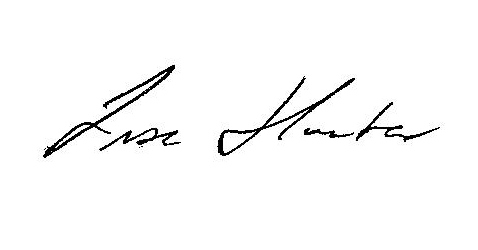 Lisa Hunter